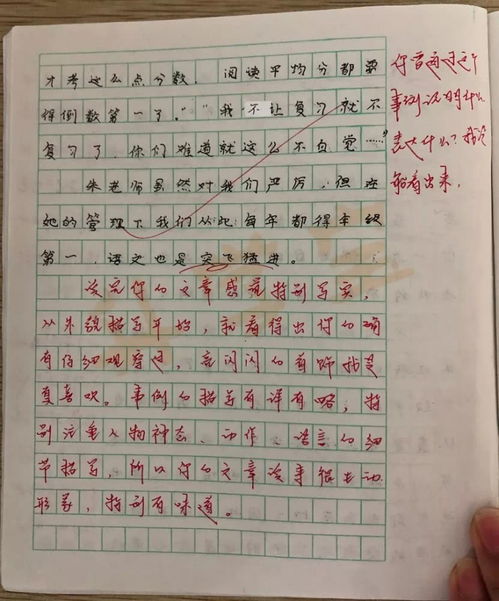 才考这么点分数，阅读平均分都要
得倒数第一了。”“我不让复习就不
复习了，你们难道就这么不自觉……”
朱老师虽然对我们严厉，但在
她的管理下我们从起，每年都得年级
第一，语文也是突飞猛进。
读完你的文章感觉特别写实，
从外貌描写开始，就看得出你的确
有仔细观察过，亮闪闪的首饰我是
真喜欢。事例的描写有详有略，特
别注重人物神态、动作、语言的细
节描写，所以你的文章读来很生动
形象，特别有味道。
你旨通过这个
事例说明什么
表达什么？我没
能看出来。